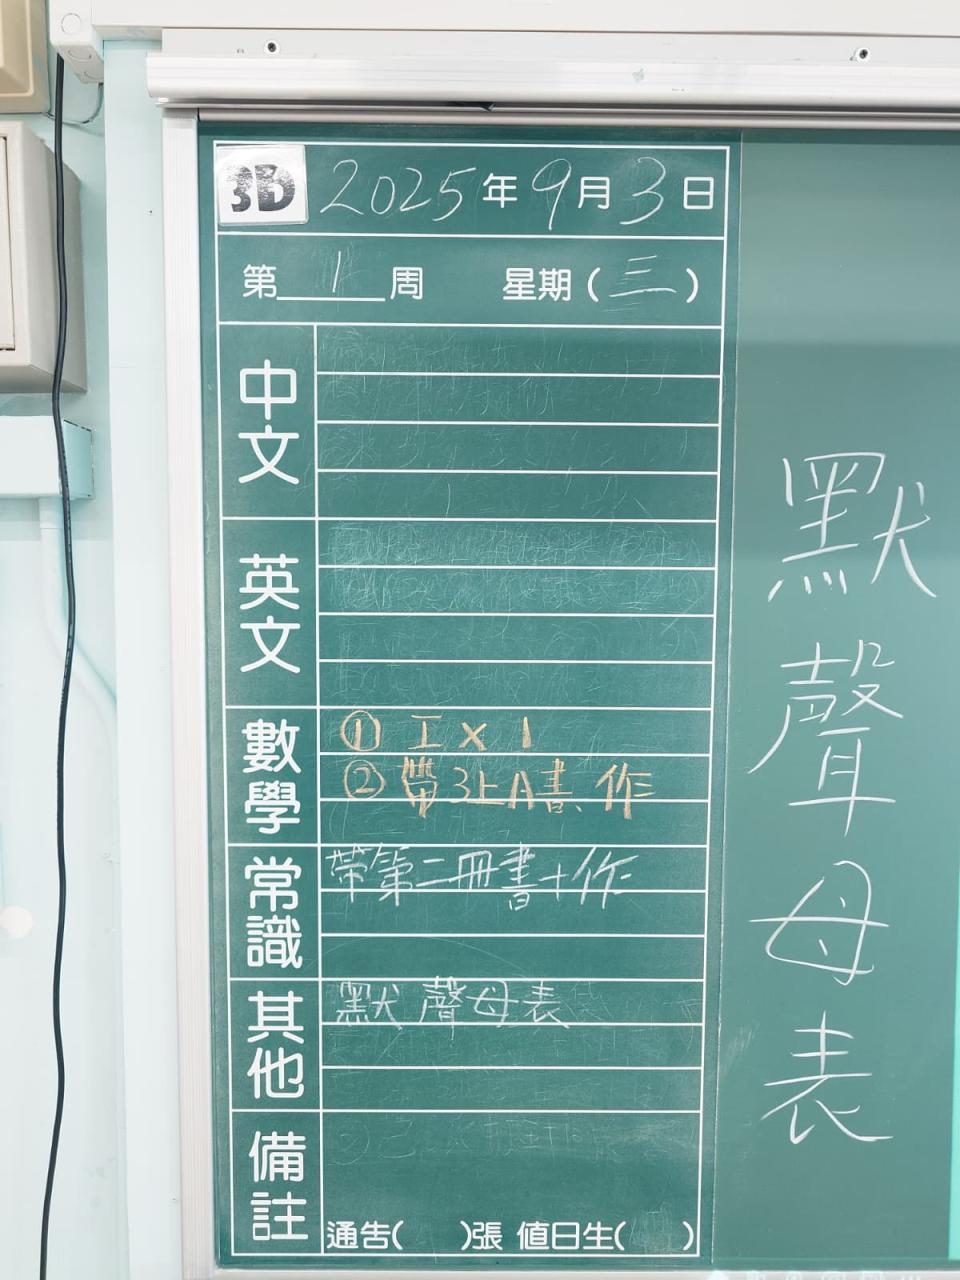 3D 2025年9月3日
第1周 星期(三)
中文
英文
數學
① 工 x 1
② 帶3上A書、作
常識
帶第二冊書+作
其他
默聲母表
備註
通告( )張 值日生( )
默聲母表